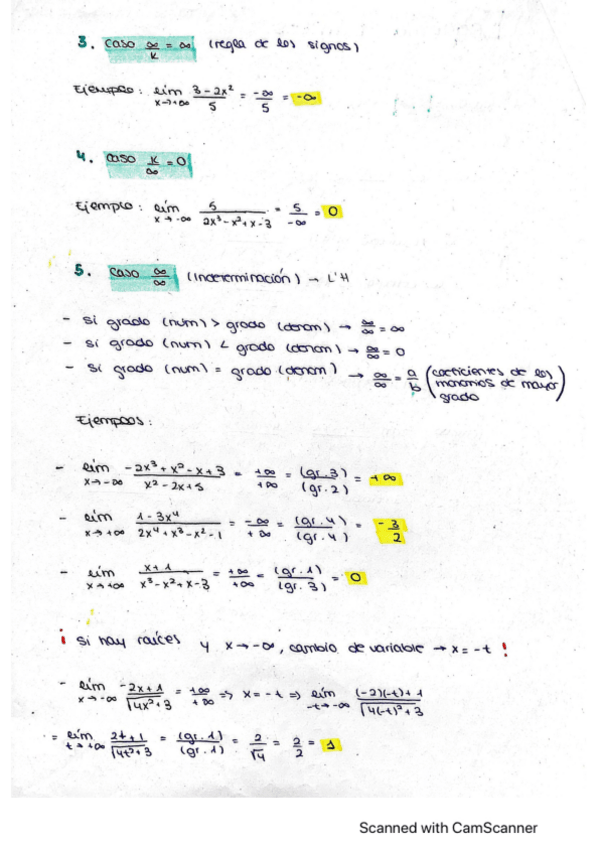 3. caso ∞/K = ∞ (regla de los signos)
Ejemplo: lím x→+∞ (3 - 2x²)/5 = -∞/5 = -∞
4. caso K/∞ = 0
Ejemplo: lím x→-∞ 5/(2x³ - x² + x - 3) = 5/-∞ = 0
5. caso ∞/∞ (Indeterminación) → L'H
- Si grado (num) > grado (denom) → ∞/∞ = ∞
- Si grado (num) < grado (denom) → ∞/∞ = 0
- Si grado (num) = grado (denom) → ∞/∞ = a/b (coeficientes de los monomios de mayor grado)
Ejemplos:
- lím x→-∞ (-2x³ + x² - x + 3)/(x² - 2x + 5) = +∞/+∞ = (gr. 3)/(gr. 2) = +∞
- lím x→+∞ (1 - 3x⁴)/(2x⁴ + x³ - x² - 1) = -∞/+∞ = (gr. 4)/(gr. 4) = -3/2
- lím x→+∞ (x + 1)/(x³ - x² + x - 3) = +∞/+∞ = (gr. 1)/(gr. 3) = 0
¡ Si hay raíces y x→-∞, cambio de variable → x = -t !
- lím x→-∞ (-2x + 1)/√(4x² + 3) = +∞/+∞ ⇒ x = -t ⇒ lím -t→-∞ ((-2)(-t) + 1)/√(4(-t)² + 3)
= lím t→+∞ (2t + 1)/√(4t² + 3) = (gr. 1)/(gr. 1) = 2/√4 = 2/2 = 1
Scanned with CamScanner